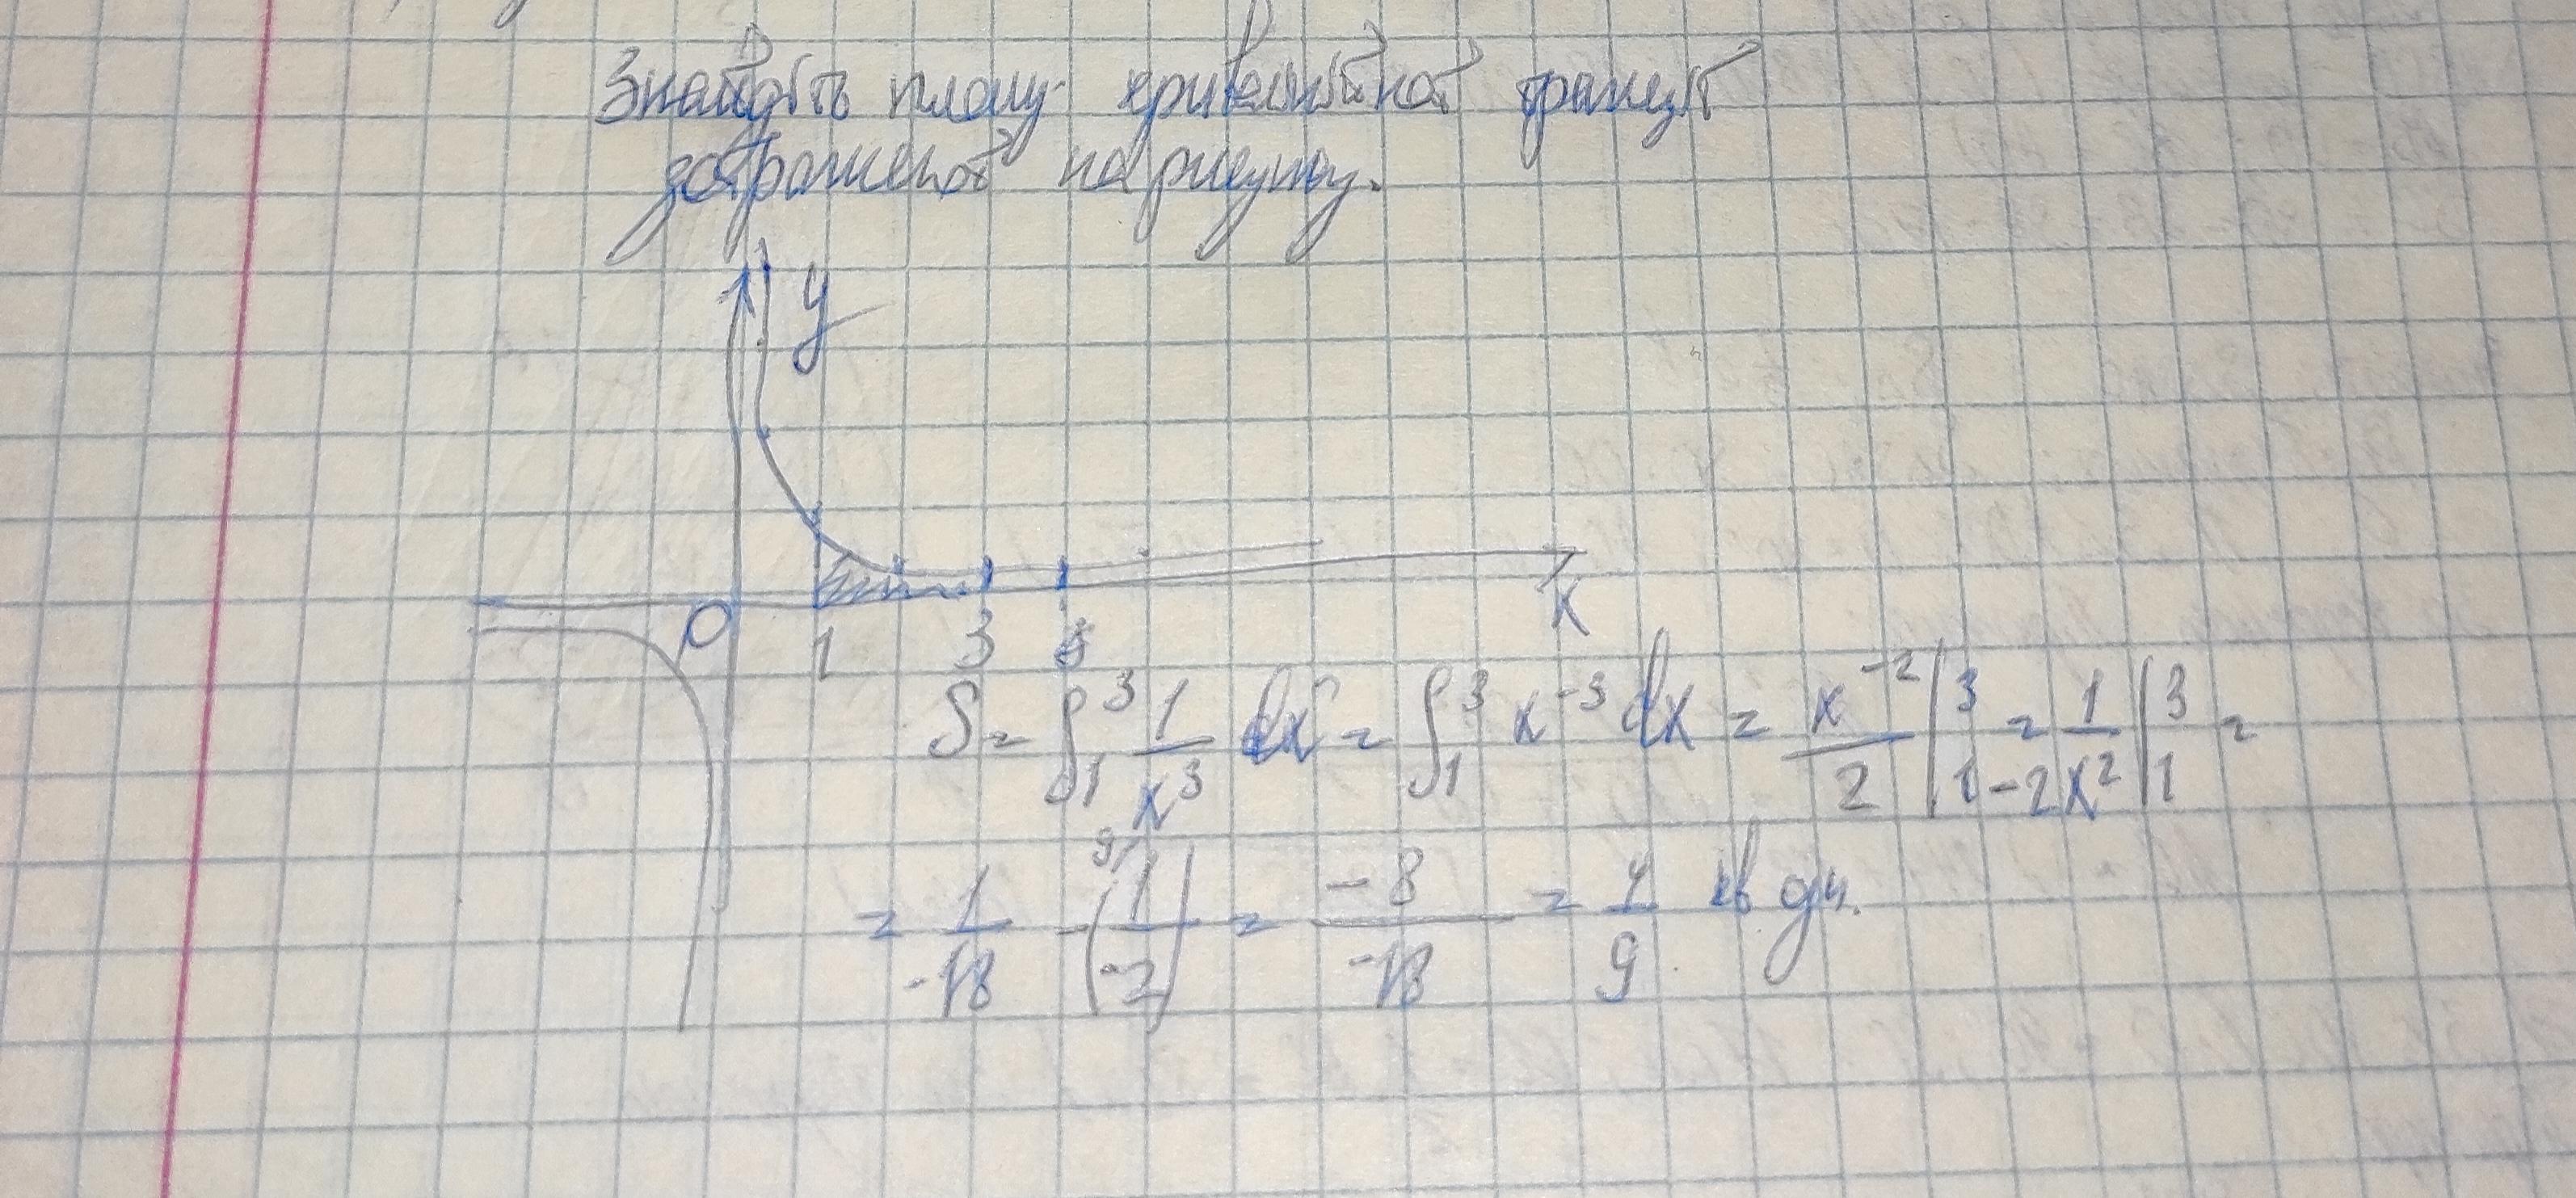 Знайдіть площ. криволінійної трапеції
зображеної на рисунку.
y
O 1 3 x
S = ∫₁³ 1/x³ dx = ∫₁³ x⁻³ dx = x⁻²/2 |₁³ = 1/-2x² |₁³ =
= 1/-18 - (1/-2) = -8/-18 = 4/9 кв од.